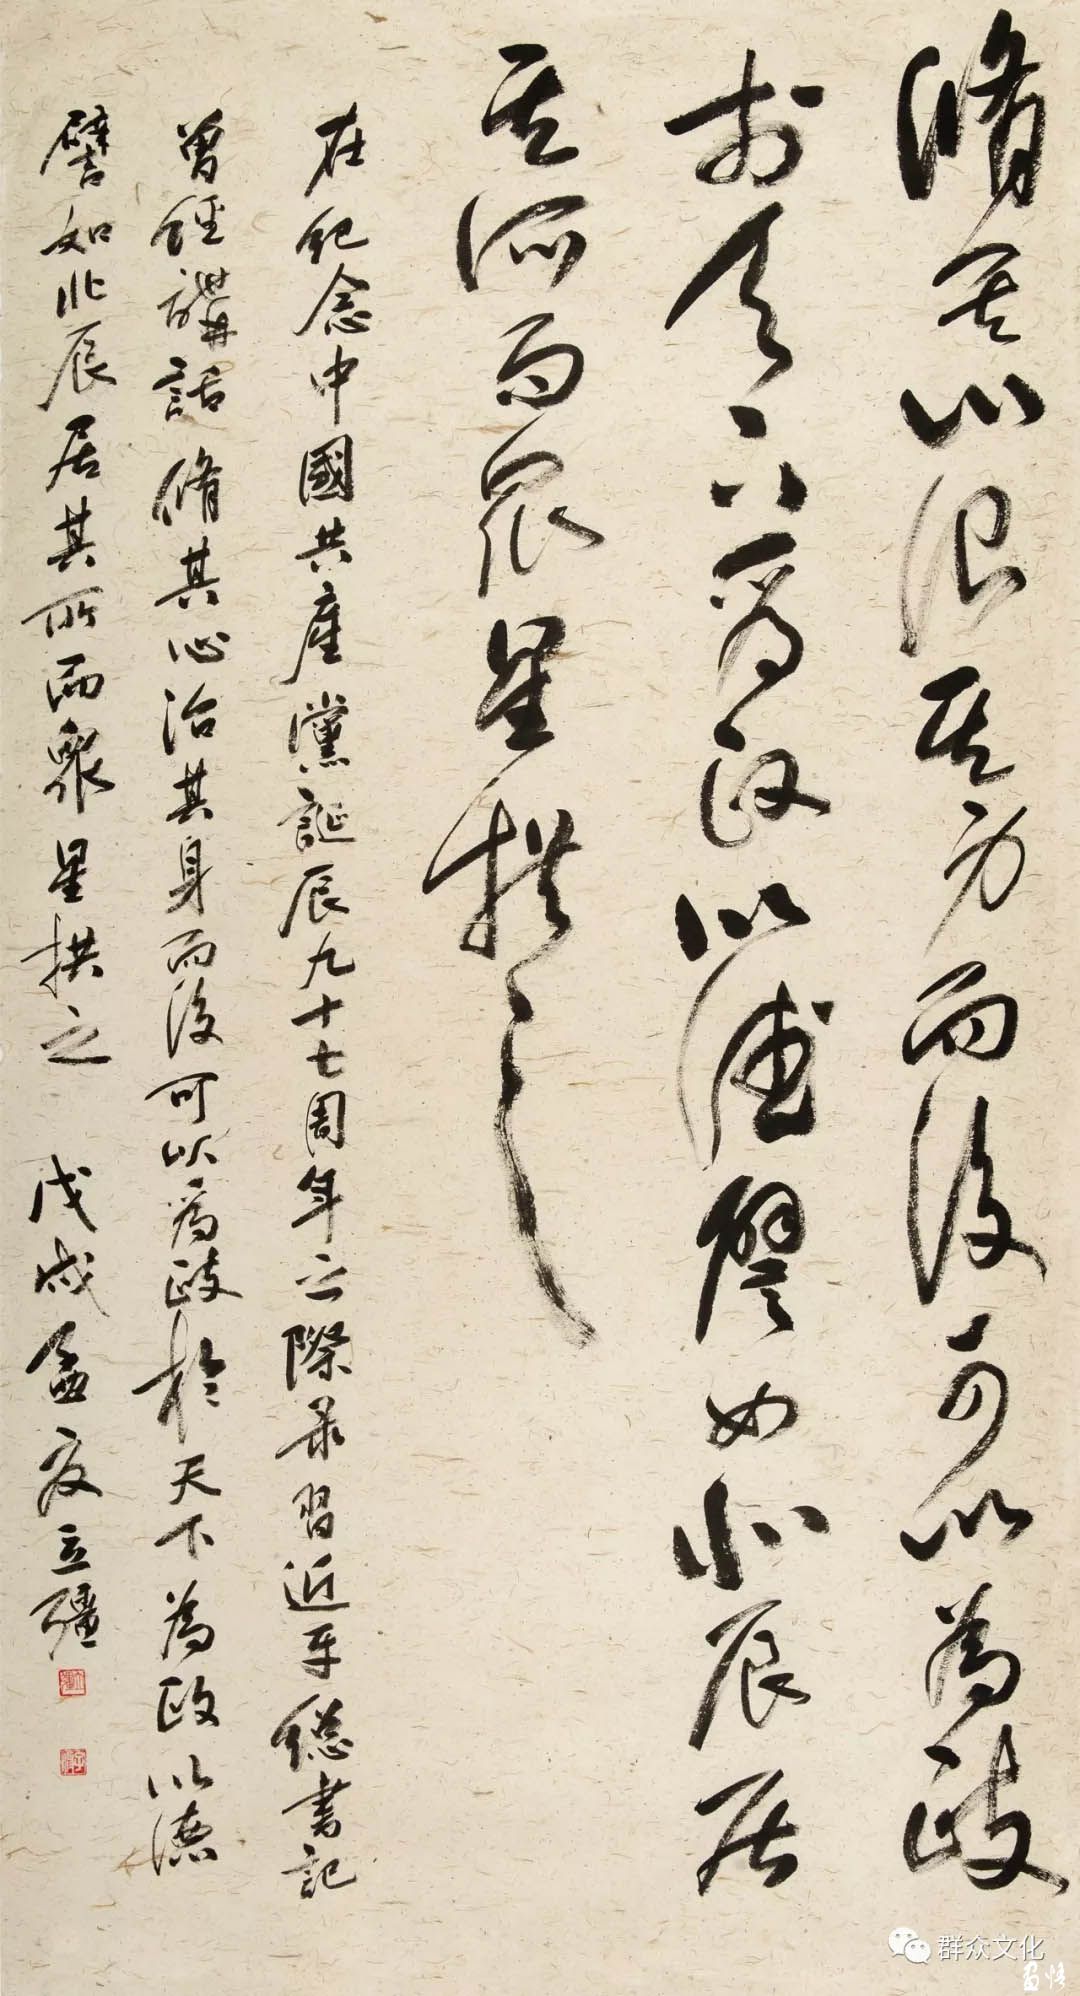 脩其心治其身而後可以為政
於天下為政以德譬如北辰居
其所而眾星拱之
在紀念中國共産黨誕辰九十七周年之際录習近平總書記
曾經講話脩其心治其身而後可以為政於天下為政以德
譬如北辰居其所而衆星拱之 戊戌孟夏立疆
群众文化